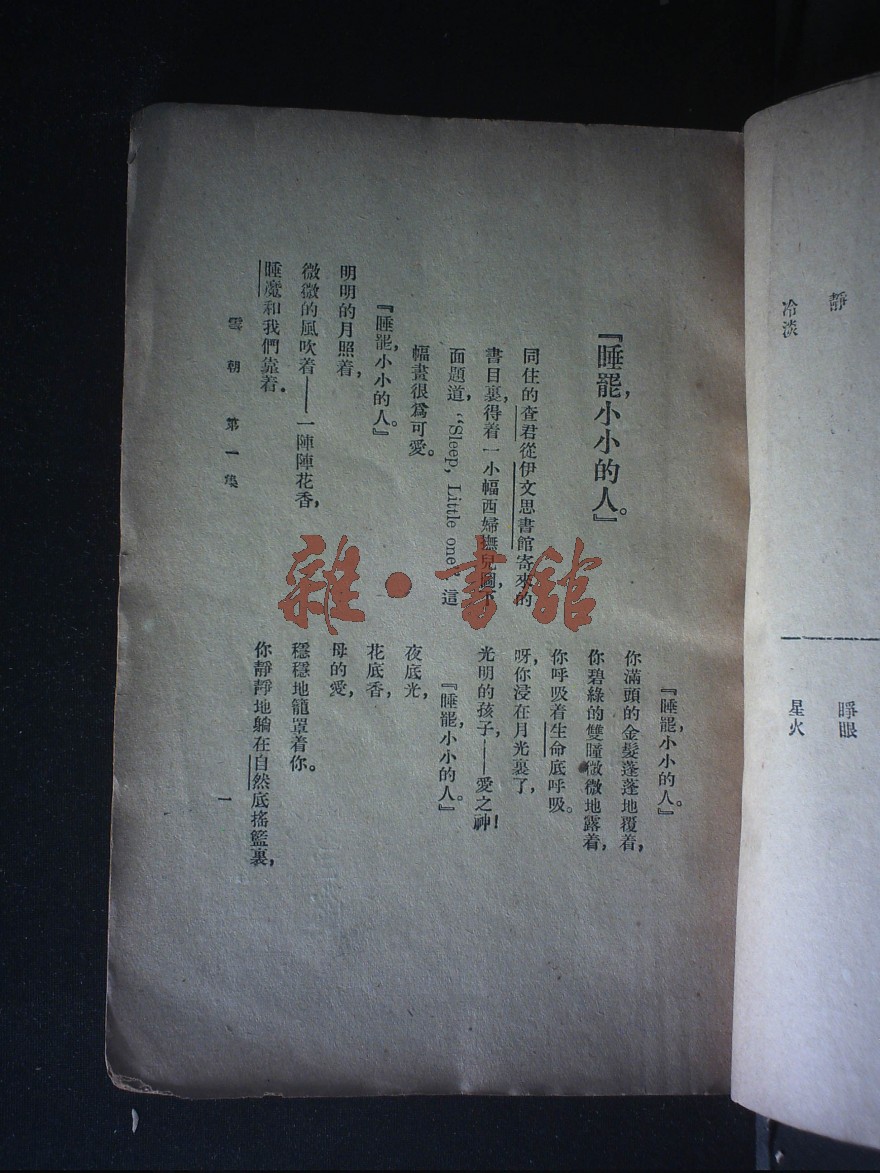 靜
冷淡
睜眼
星火
『睡罷，小小的人。』
同住的查君從伊文思書館寄來的
書目裏，得着一小幅西婦撫兒圖，下
面題道，“Sleep, Little one”這
幅畫很爲可愛。
『睡罷，小小的人。』
明明的月照着，
微微的風吹着——一陣陣花香，
睡魔和我們靠着。
『睡罷，小小的人。』
你滿頭的金髮蓬蓬地覆着，
你碧綠的雙瞳微微地露着，
你呼吸着生命底呼吸。
呀，你浸在月光裏了，
光明的孩子，——愛之神！
『睡罷，小小的人。』
夜底光，
花底香，
母的愛，
穩穩地籠罩着你。
你靜靜地躺在自然底搖籃裏，
雪朝 第一集
一
雜·書館